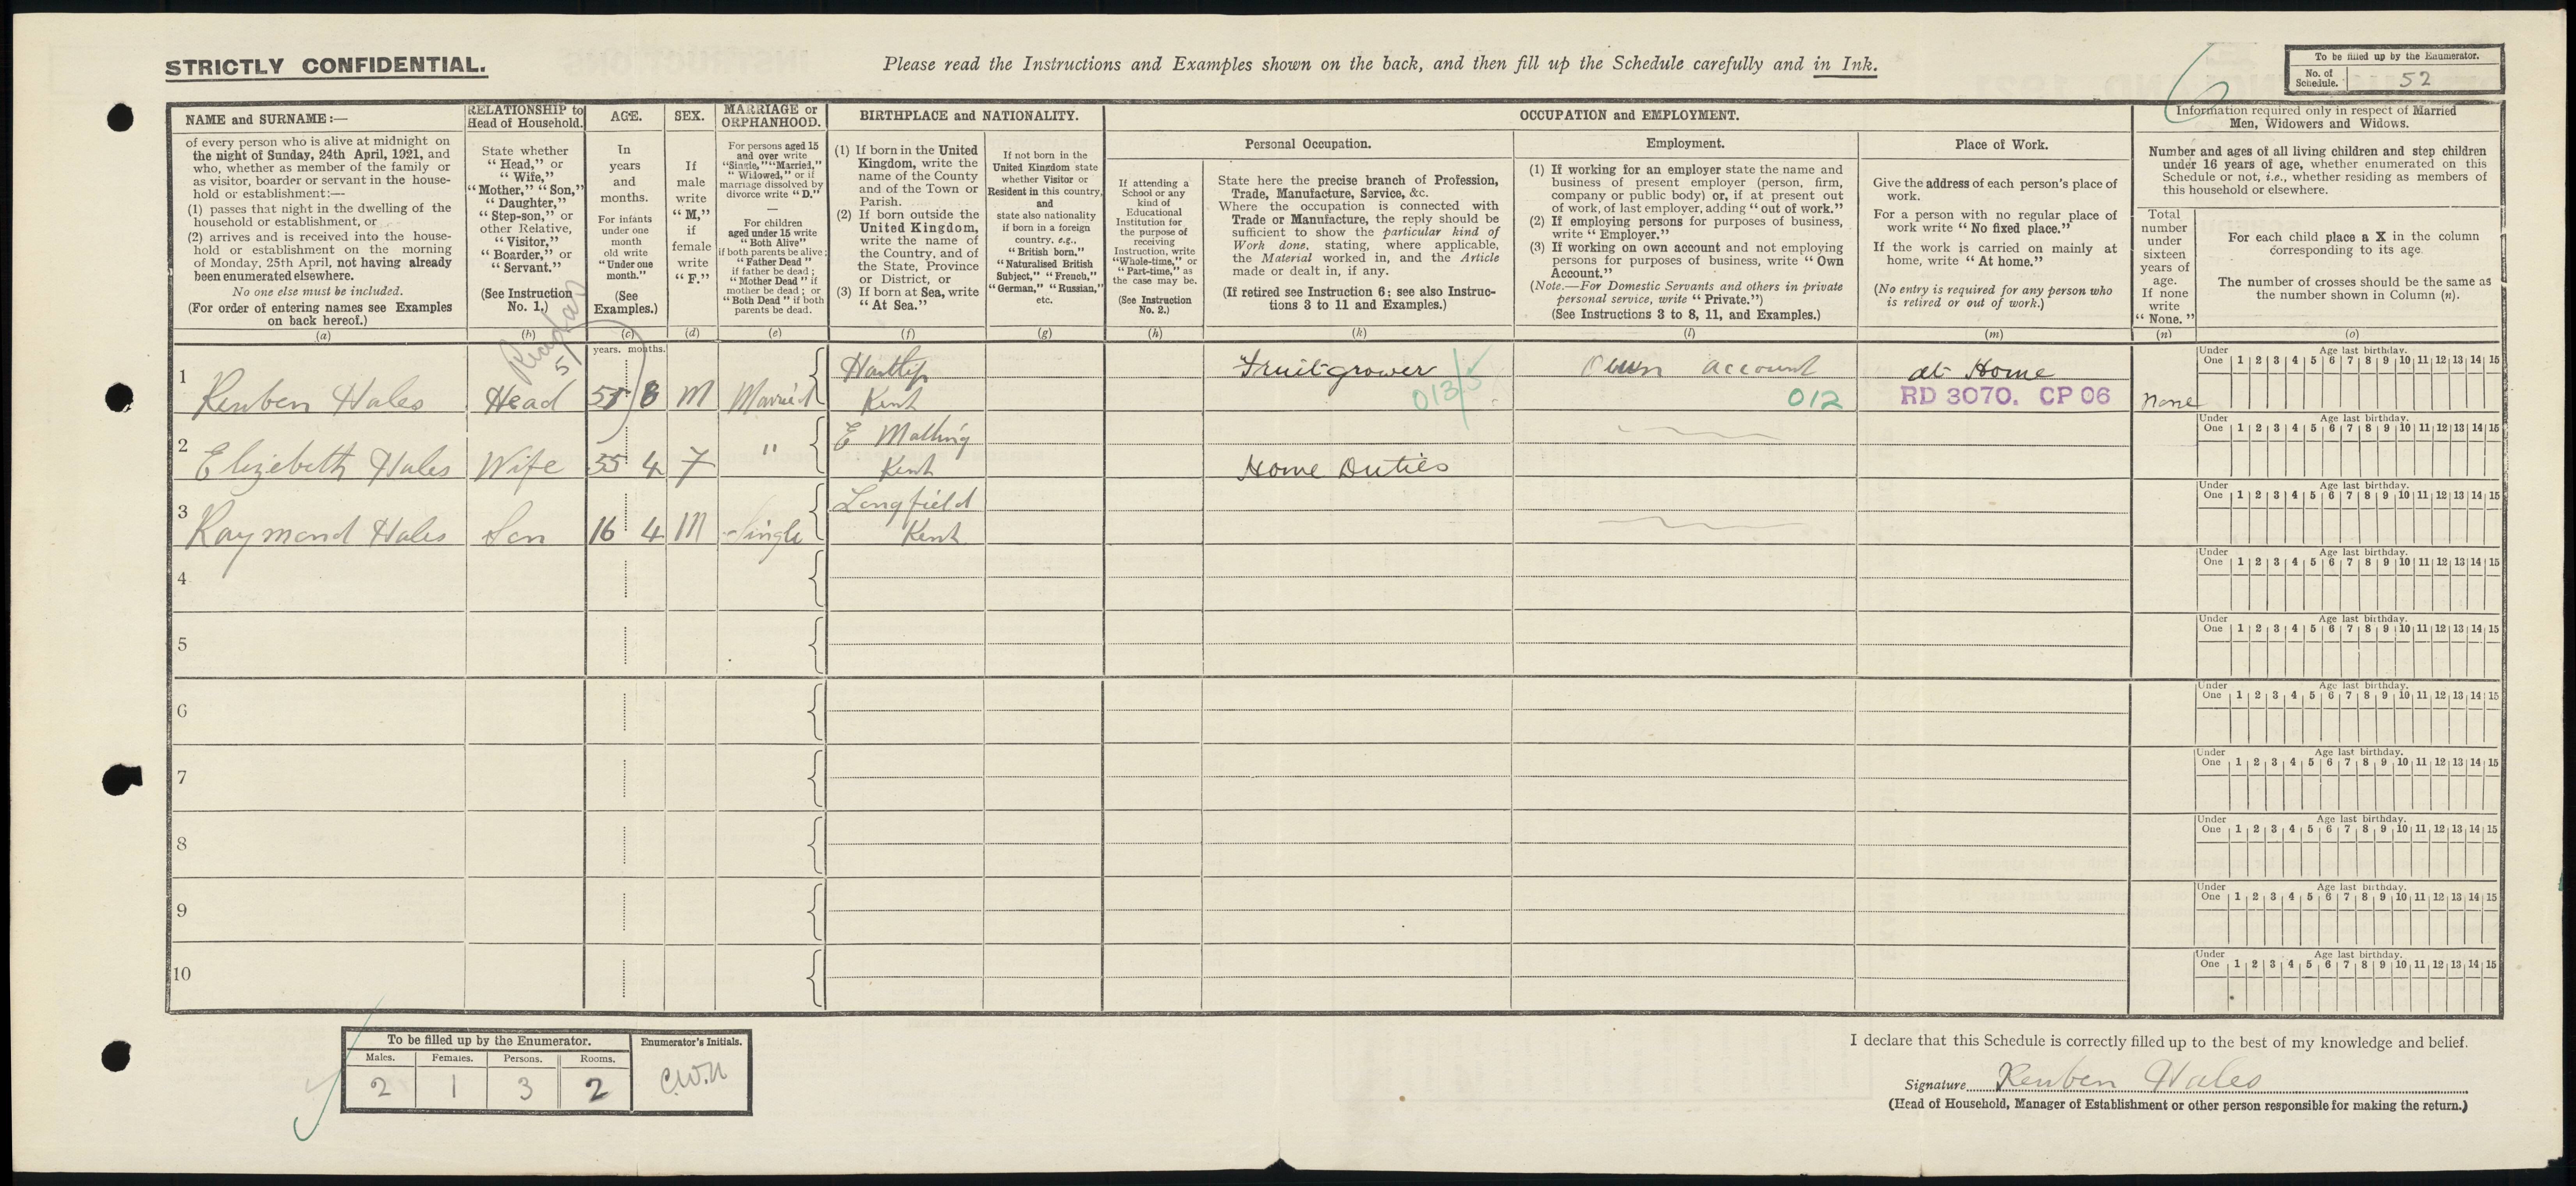 STRICTLY CONFIDENTIAL.
Please read the Instructions and Examples shown on the back, and then fill up the Schedule carefully and in Ink.
To be filled up by the Enumerator.
No. of Schedule. 52
NAME and SURNAME:—
of every person who is alive at midnight on
the night of Sunday, 24th April, 1921, and
who, whether as member of the family or
as visitor, boarder or servant in the house-
hold or establishment:—
(1) passes that night in the dwelling of the
household or establishment, or
(2) arrives and is received into the house-
hold or establishment on the morning
of Monday, 25th April, not having already
been enumerated elsewhere.
No one else must be included.
(For order of entering names see Examples
on back hereof.)
(a)
RELATIONSHIP to
Head of Household.
State whether
"Head," or
"Wife,"
"Mother," "Son,"
"Daughter,"
"Step-son," or
other Relative,
"Visitor,"
"Boarder," or
"Servant."
(See Instruction
No. 1.)
(b)
AGE.
In
years
and
months.
For infants
under one
month
old write
"Under one
month."
(See
Examples.)
(c)
SEX.
If
male
write
"M,"
if
female
write
"F."
(d)
MARRIAGE or
ORPHANHOOD.
For persons aged 15
and over write
"Single," "Married,"
"Widowed," or if
marriage dissolved by
divorce write "D."
—
For children
aged under 15 write
"Both Alive"
if both parents be alive;
"Father Dead"
if father be dead;
"Mother Dead" if
mother be dead; or
"Both Dead" if both
parents be dead.
(e)
BIRTHPLACE and NATIONALITY.
(1) If born in the United
Kingdom, write the
name of the County
and of the Town or
Parish.
(2) If born outside the
United Kingdom,
write the name of
the Country, and of
the State, Province
or District, or
(3) If born at Sea, write
"At Sea."
(f)
If not born in the
United Kingdom state
whether Visitor or
Resident in this country,
and
state also nationality
if born in a foreign
country, e.g.,
"British born,"
"Naturalised British
Subject," "French,"
"German," "Russian,"
etc.
(g)
OCCUPATION and EMPLOYMENT.
If attending a
School or any
kind of
Educational
Institution for
the purpose of
receiving
Instruction, write
"Whole-time," or
"Part-time," as
the case may be.
(See Instruction
No. 2.)
(h)
Personal Occupation.
State here the precise branch of Profession,
Trade, Manufacture, Service, &c.
Where the occupation is connected with
Trade or Manufacture, the reply should be
sufficient to show the particular kind of
Work done, stating, where applicable,
the Material worked in, and the Article
made or dealt in, if any.
(If retired see Instruction 6; see also Instruc-
tions 3 to 11 and Examples.)
(k)
Employment.
(1) If working for an employer state the name and
business of present employer (person, firm,
company or public body) or, if at present out
of work, of last employer, adding "out of work."
(2) If employing persons for purposes of business,
write "Employer."
(3) If working on own account and not employing
persons for purposes of business, write "Own
Account."
(Note.—For Domestic Servants and others in private
personal service, write "Private.")
(See Instructions 3 to 8, 11, and Examples.)
(l)
Place of Work.
Give the address of each person's place of
work.
For a person with no regular place of
work write "No fixed place."
If the work is carried on mainly at
home, write "At home."
(No entry is required for any person who
is retired or out of work.)
(m)
Information required only in respect of Married
Men, Widowers and Widows.
Number and ages of all living children and step children
under 16 years of age, whether enumerated on this
Schedule or not, i.e., whether residing as members of
this household or elsewhere.
Total
number
under
sixteen
years of
age.
If none
write
"None."
(n)
For each child place a X in the column
corresponding to its age.
The number of crosses should be the same as
the number shown in Column (n).
(o)
years. months.
1 Reuben Hales Head 55 8 M Married Hartlip Kent Fruit grower 013/5 Own account 012 at Home RD 3070. CP 06 None
Under One Age last birthday. 1 2 3 4 5 6 7 8 9 10 11 12 13 14 15
2 Elizebeth Hales Wife 55 4 F " E Malling Kent Home Duties
Under One Age last birthday. 1 2 3 4 5 6 7 8 9 10 11 12 13 14 15
3 Raymond Hales Son 16 4 M Single Longfield Kent
Under One Age last birthday. 1 2 3 4 5 6 7 8 9 10 11 12 13 14 15
4
Under One Age last birthday. 1 2 3 4 5 6 7 8 9 10 11 12 13 14 15
5
Under One Age last birthday. 1 2 3 4 5 6 7 8 9 10 11 12 13 14 15
6
Under One Age last birthday. 1 2 3 4 5 6 7 8 9 10 11 12 13 14 15
7
Under One Age last birthday. 1 2 3 4 5 6 7 8 9 10 11 12 13 14 15
8
Under One Age last birthday. 1 2 3 4 5 6 7 8 9 10 11 12 13 14 15
9
Under One Age last birthday. 1 2 3 4 5 6 7 8 9 10 11 12 13 14 15
10
Under One Age last birthday. 1 2 3 4 5 6 7 8 9 10 11 12 13 14 15
To be filled up by the Enumerator.
Males. Females. Persons. Rooms.
2 1 3 2
Enumerator's Initials.
C.W.H
I declare that this Schedule is correctly filled up to the best of my knowledge and belief.
Signature Reuben Hales
(Head of Household, Manager of Establishment or other person responsible for making the return.)